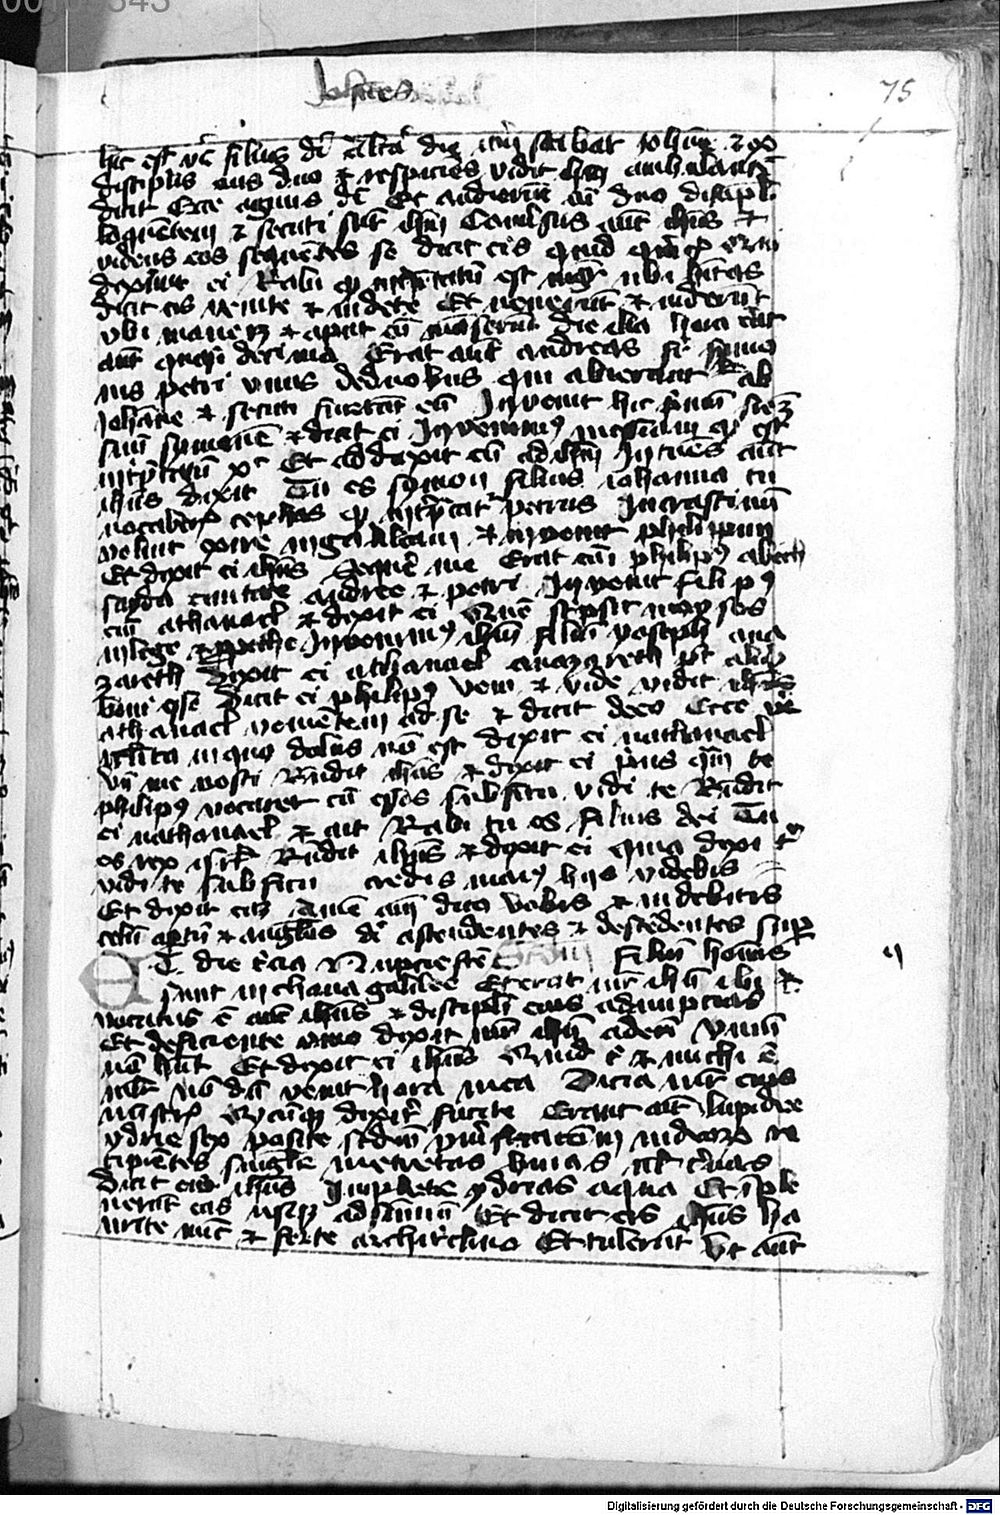 Johannes
75
hic est vc filius di Altera die iterum stabat Johannes et ex
discipulis eius duo et respiciens vidit ihm ambulantem
dicit Ecce agnus di Et audierunt eum duo discipuli
loquentem et secuti sunt ihm Conversus aut ihus et
videns eos sequentes se dicit eis quid queritis
dixerunt ei Rabi quod interpretatum est mgr ubi habitas
dicit eis venite et videte Et venerunt et viderunt
vbi maneret et aput eum manserunt die illa hora erat
aut quasi decima Erat aut andreas fr symo
nis petri vnus deduobus qui audierant ab
Johanne et secuti fuerant eum Invenit hic primum fratrem
suum symonem et dicit ei Invenimus messiam quod est
interpretatum xpc Et adduxit eum ad ihm Intuens aut
ihus dixit Tu es symon filius iohanna tu
vocaberis cephas quod interpretatur petrus Incrastinum
voluit exire ingalileam et invenit philippum
Et dixit ei ihus Sequere me Erat aut philipus abeth
sayda civitate andree et petri Invenit filipus
athanael et dixit ei Quem scripsit moyses
inlege et prophete Invenimus ihm filium yoseph ana
zareth Dixit ei athanael anazareth pt aliquid
boni esse Dicit ei philipus veni et vide vidit ihus
athanael venientem ad se et dicit deeo Ecce vere
isrlita inquo dolus non est dixit ei nathanael
vn me nosti Rndit ihus et dixit ei prius quam te
philipus vocaret cu esses subficu vidi te Rndit
ei nathanael et ait Rabi tu es filius dei Tu
es rex isrl Rndit ihus et dixit ei quia dixi t
vidi te subficu credis maius hijs videbis
Et dixit eis Amen amen dico vobis et videbitis
celum aptum et anglos di ascendentes et descendentes supra
Et die tercia Nupcie fce filium hominis
sunt inchana galilee Et erat mr ihu ibi et
vocatus e aut ihus et discipuli eius adnupcias
Et deficiente vino dixit mr ihu adeum vinum
non hnt Et dixit ei ihus Quid t et michi e
mlr non du venit hora mea Dicit mr eius
ministris Quodcumque dixerit facite Erant aut lapidee
ydrie sex posite scdm purificacionem iudeorum
capientes singule metretas binas ul ternas
Dicit eis ihus Implete ydrias aqua Et imple
verunt eas usque adsummum Et dicit eis ihus ha
urite nunc et ferte architriclino Et tulerunt Vt aut
Digitalisierung gefördert durch die Deutsche Forschungsgemeinschaft - DFG